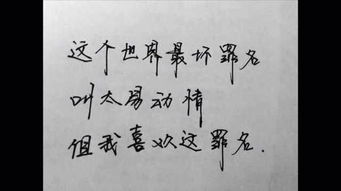 这个世界最坏罪名
叫太易动情
但我喜欢这罪名.